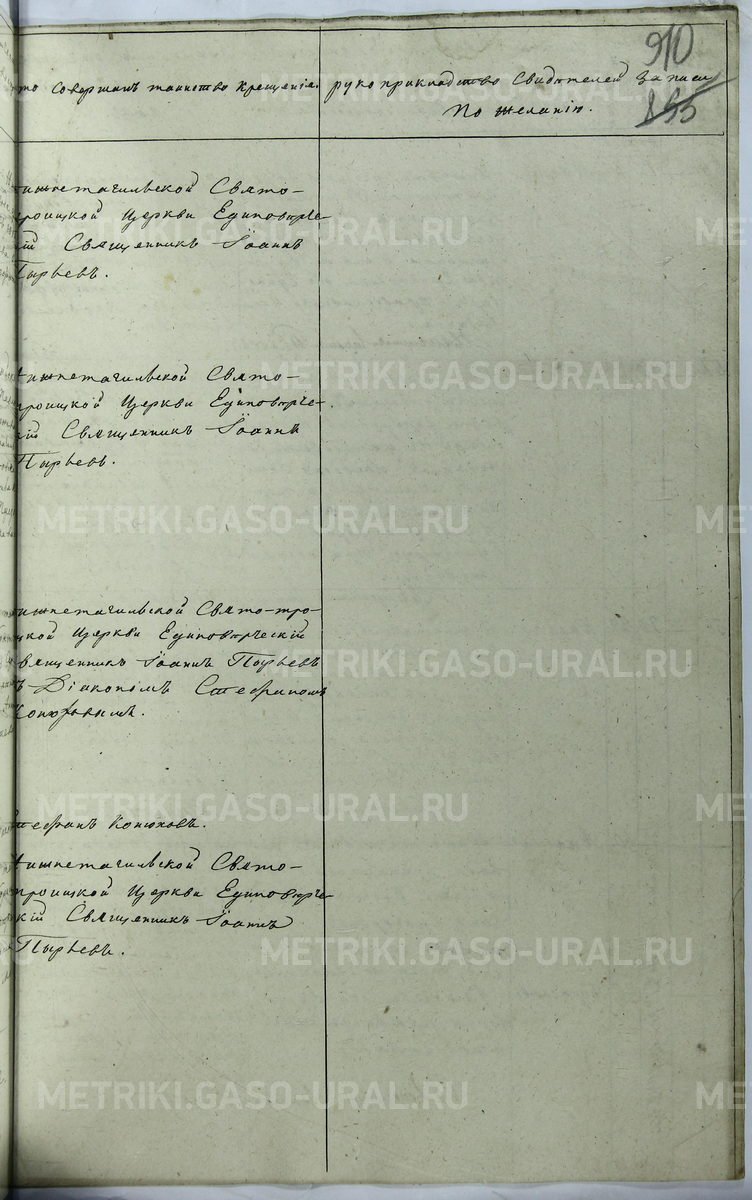 910
855
то совершалъ таинство крещенія.
рукоприкладство свидѣтелей записи
по желанію.
ижнетагильской Свято-
роицкой Церкви Единовѣрче-
кій Священникъ Іоаннъ
Пырьевъ.
ижнетагильской Свято-
роицкой Церкви Единовѣрче-
кій Священникъ Іоаннъ
Пырьевъ.
ижнетагильской Свято-тро-
цкой Церкви Единовѣрческій
вященникъ Іоаннъ Пырьевъ
ъ Діакономъ Стефаномъ
Конюховымъ.
Стефанъ Конюховъ.
ижнетагильской Свято-
троицкой Церкви Единовѣрче-
кій Священникъ Іоаннъ
Пырьевъ.
METRIKI.GASO-URAL.RU